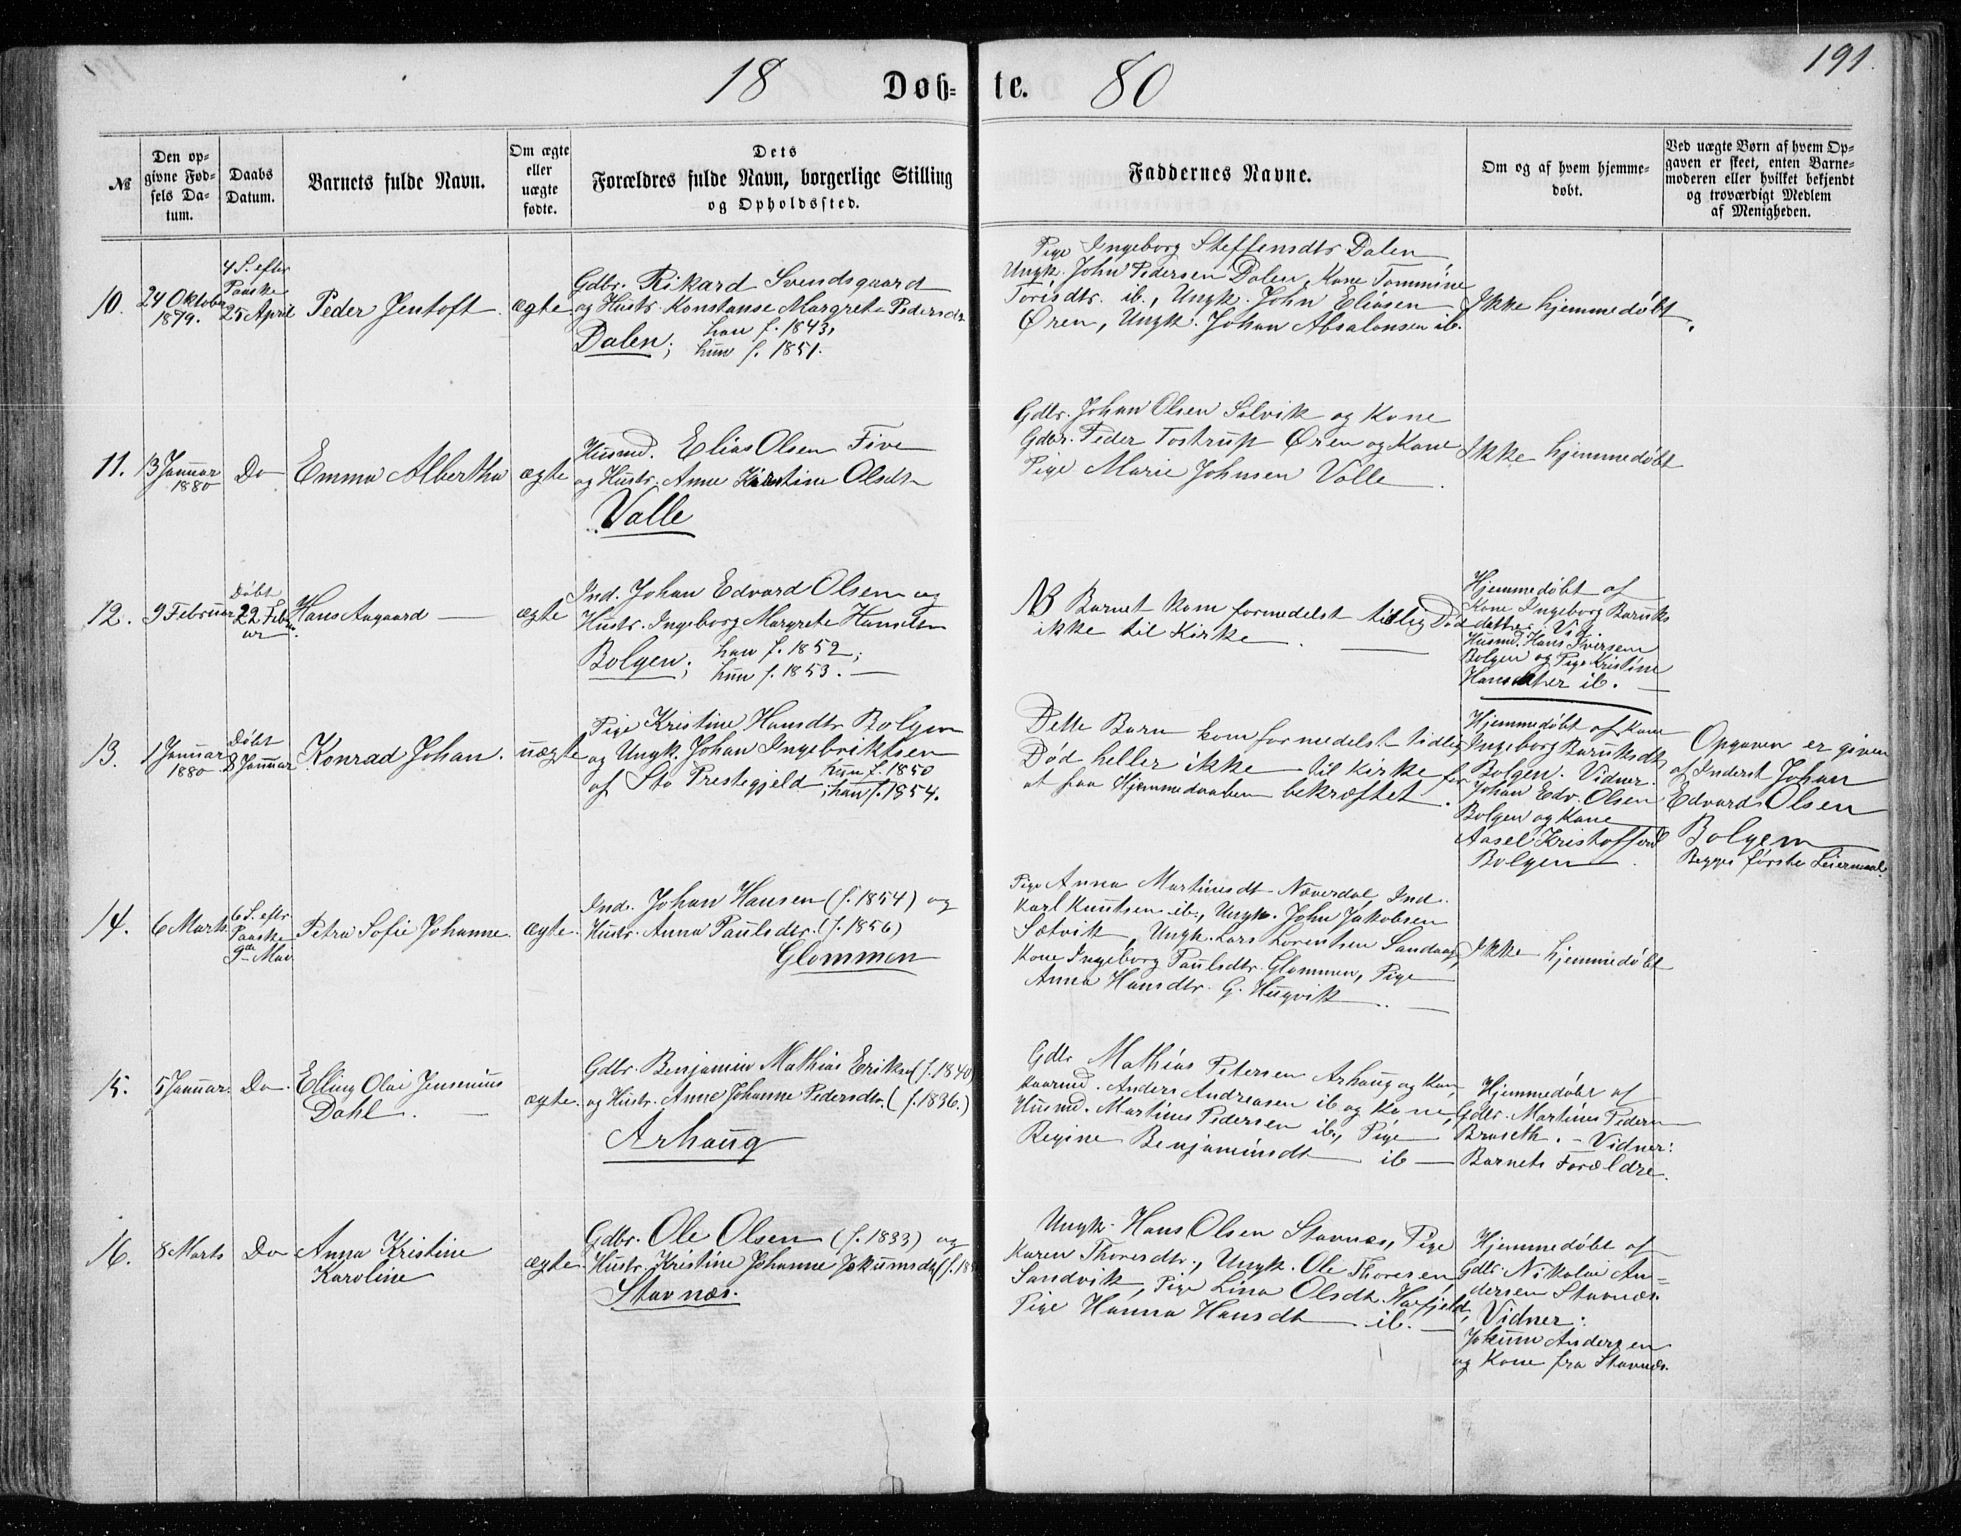 18 Døb= te. 80
191.
№
Den op-
givne Fød-
sels Da-
tum.
Daabs
Datum.
Barnets fulde Navn.
Om ægte
eller
uægte
fødte.
Dets
Forældres fulde Navn, borgerlige Stilling
og Opholdssted.
Faddernes Navne.
Om og af hvem hjemme-
døbt.
Ved uægte Børn af hvem Op-
gaven er skeet, enten Barne-
moderen eller hvilket bekjendt
og troværdigt Medlem
af Menigheden.
10.
24 Oktober
1879.
4 S. efter
Paaske
25 April
Peder Jentoft
ægte
Gdbr. Rikard Svendsgaard
og Hustr. Konstanse Margrete Pedersdr
han f. 1843,
Dalen; hun f. 1851.
Pige Ingeborg Steffensdtr Dalen,
Ungk. John Pedersen Dalen, Kone Tommine
Torisdtr. ib., Ungk. John Eliasen
Øren, Ungk. Johan Absalonsen ib.
Ikke hjemmedøbt.
11.
13 Januar
1880
Do
Emma Albertha
ægte
Husmd. Elias Olsen Five
og Hustr. Anne Kirstine Olsdtr
Valle
Gdbr. Johan Olsen Selvik og Kone
Gdbr. Peder Tostrup Øren og Kone
Pige Marie Johnsen Valle.
Ikke hjemmedøbt
12.
9 Februar
Døbt
22 Febru
ar
Hans Aagaard
ægte
Ind. Johan Edvard Olsen og
Hustr. Ingeborg Margrete Hansdtr
Bolgen; han f. 1852;
hun f. 1853.
NB Barnet kom formedelst tidlig Død
ikke til Kirke.
Hjemmedøbt af
Kone Ingeborg Baruks
datter. Vid.
Husmd. Hans Iversen
Bolgen og Pige Kristine
Hansdatter ib.
13.
1 Januar
1880
Døbt
8 Januar
Konrad Johan.
uægte
Pige Kristine Hansdtr Bolgen
og Ungk. Johan Ingebriktsen
af Stø Prestegjeld hun f. 1850
; han f. 1854.
Dette Barn kom formedelst tidlig
Død heller ikke til Kirke for
at faa Hjemmedaaben bekræftet.
Hjemmedøbt af Kone
Ingeborg Baruksdtr
Bolgen. Vidner.
Johan Edv. Olsen
Bolgen og Kone
Aasel Kristoffersd
Bolgen.
Opgaven er given
af Inderst Johan
Edvard Olsen
Bolgen
Begges første Leiermaal.
14.
6 Marts
6 S. eftr
Paaske
9de Mai
Petra Sofie Johanne
ægte.
Ind. Johan Hansen (f. 1854) og
Hustr. Anna Paulsdtr. (f. 1856)
Glommen
Pige Anna Martinesdt Næverdal, Ind.
Karl Knutsen ib., Ungk. John Jakobsen
Sætvik, Ungk. Lars Lorentsen Sandaag,
Kone Ingeborg Paulsdtr. Glommen, Pige
Anna Hansdtr. G. Hugvik.
Ikke hjemmedøbt
15.
5 Januar.
Do.
Elling Olai Jensenius
Dahl.
ægte.
Gdbr. Benjamin Mathias Eriksen (f. 1840)
og Hustr. Anne Johanne Pedersdtr. (f. 1836.)
Arhaug
Gdbr Mathias Petersen Arhaug og Kone,
Kaarmd. Anders Andreasen ib og Kone,
Husmd. Martinus Pedersen ib., Pige
Regine Benjaminsdt ib
Hjemmedøbt af
Gdbr. Martinus Pedern
Braseth. - Vidner:
Barnets Forældre.
16.
8 Marts
Do
Anna Kristine
Karoline
ægte.
Gdbr. Ole Olsen (f. 1833) og
Hustr. Kristine Johanne Jokumsdtr (f. 18
Stavnæs.
Ungk. Hans Olsen Stavnæs, Pige
Karen Thoresdtr., Ungk. Ole Thoresen,
Sandvik, Pige Lina Olsdt. Høgfjeld,
Pige Hanna Hansdt ib.
Hjemmedøbt af
Gdbr. Nikolai An=
dersen Stavnæs.
Vidner:
Jokum Andersen
og Kone fra Stavnæs.